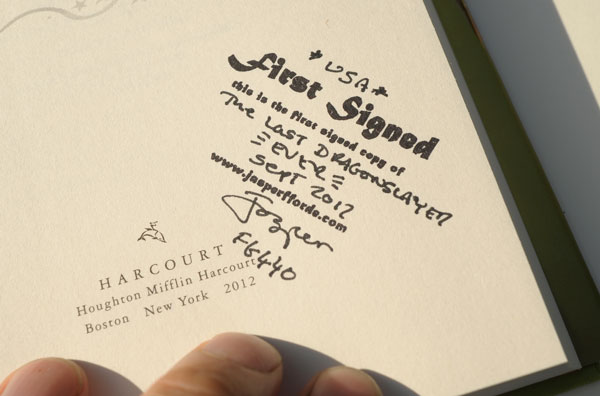 USA
First Signed
this is the first signed copy of
The LAST DRAGONSLAYER
EVER
Sept 2012
www.jasperfforde.com
Jasper
FF6440
HARCOURT
Houghton Mifflin Harcourt
Boston New York 2012